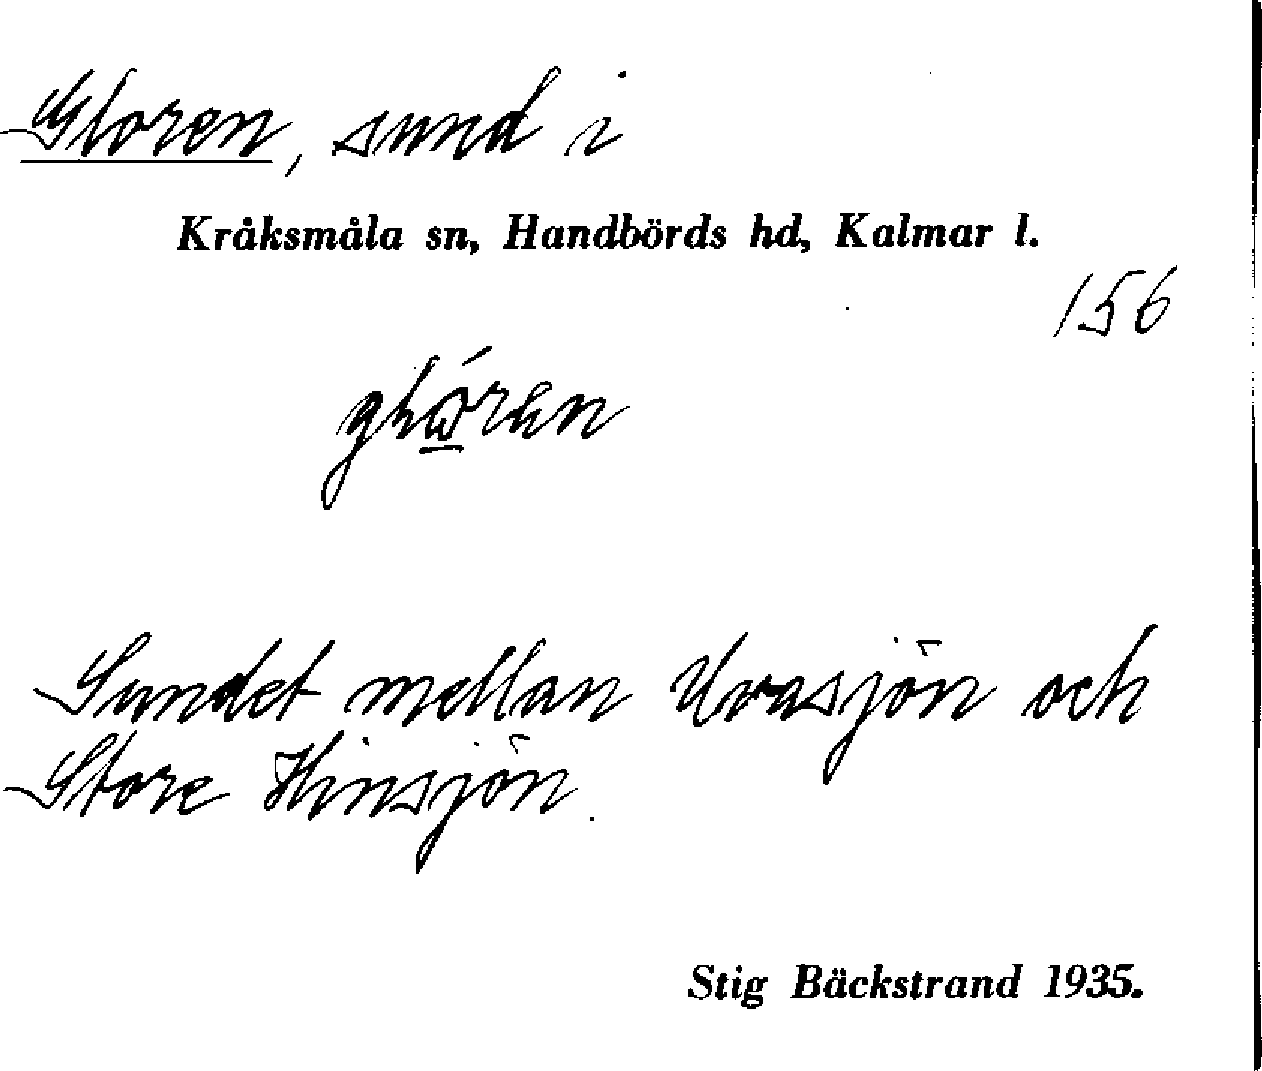 Gloren, sund i
Kråksmåla sn, Handbörds hd, Kalmar l.
156
Sundet mellan Uvasjön och
Store Hinsjön.
Stig Bäckstrand 1935.